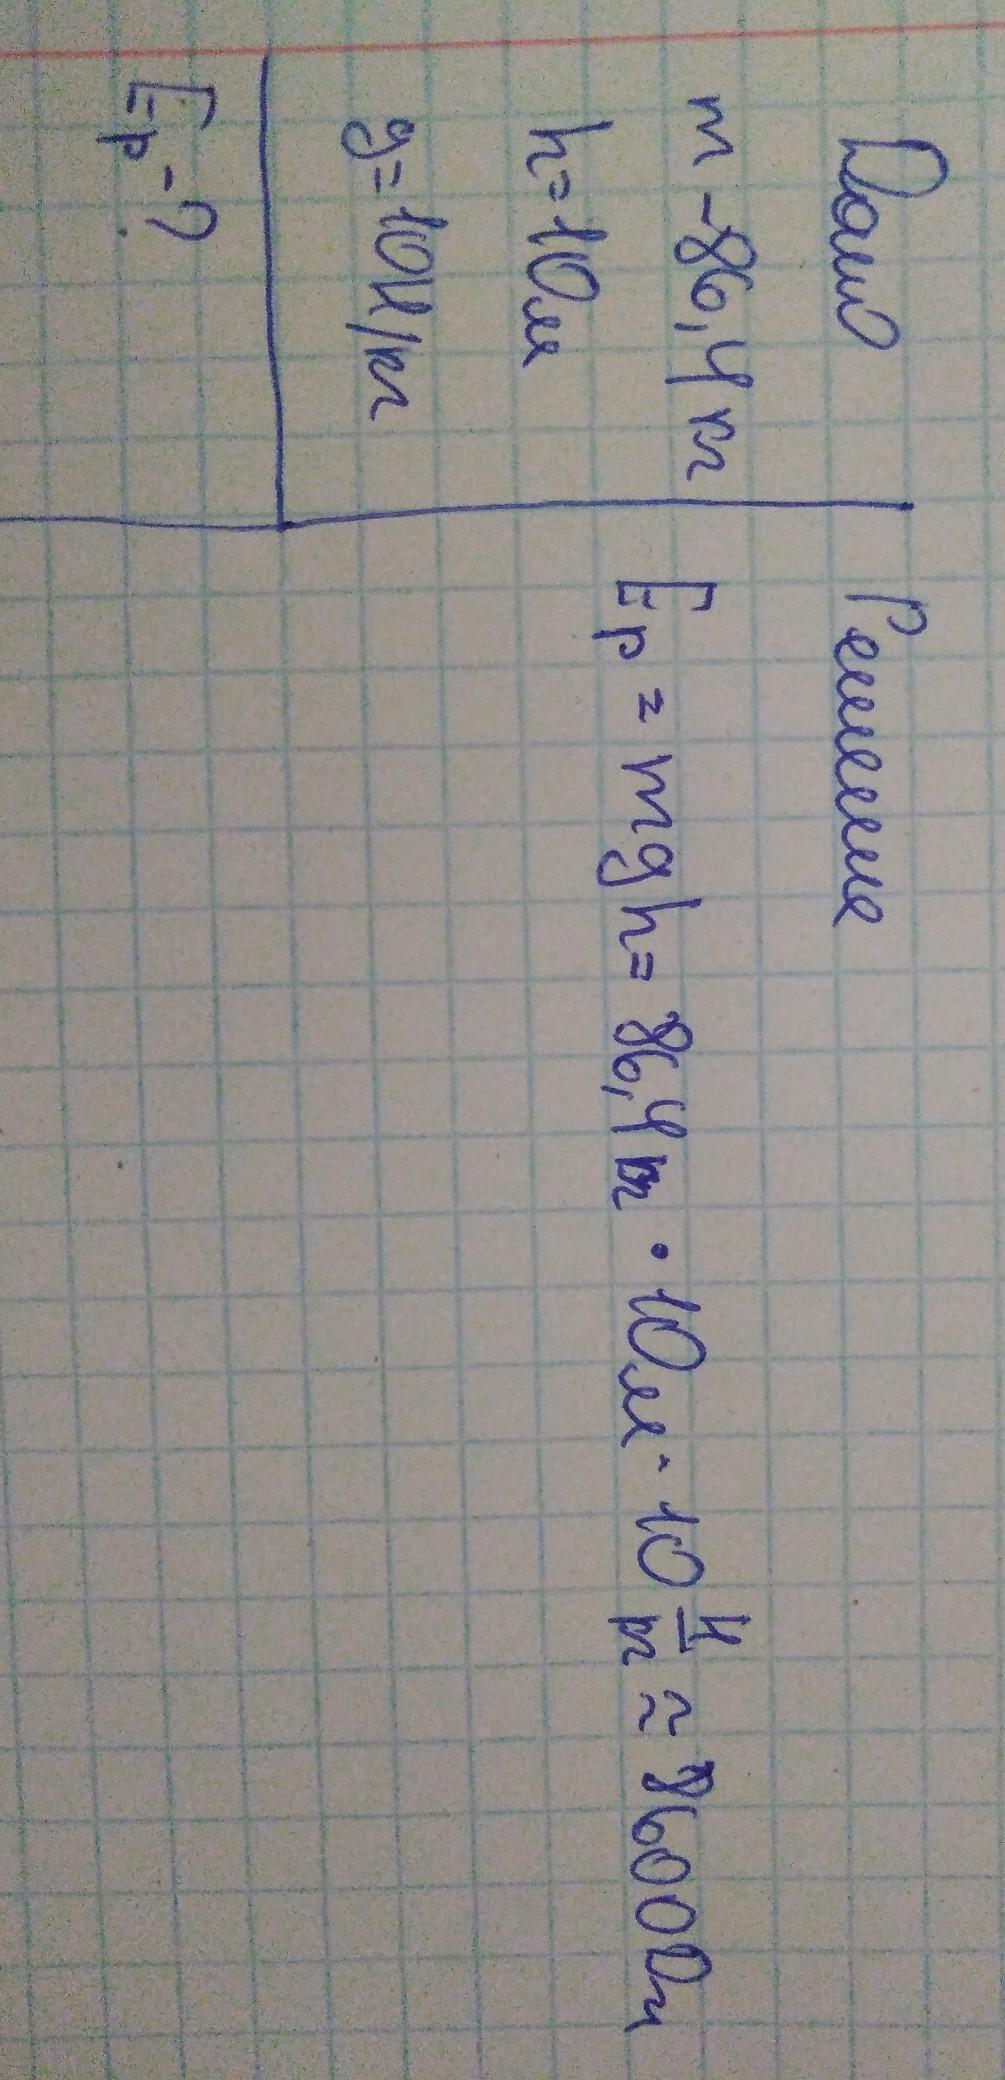 Дано
m - 86,4 кг
h = 10м
g = 10 Н/кг
Ep - ?
Решение
Ep = mgh = 86,4 кг · 10м · 10 Н/кг ≈ 8600 Дж